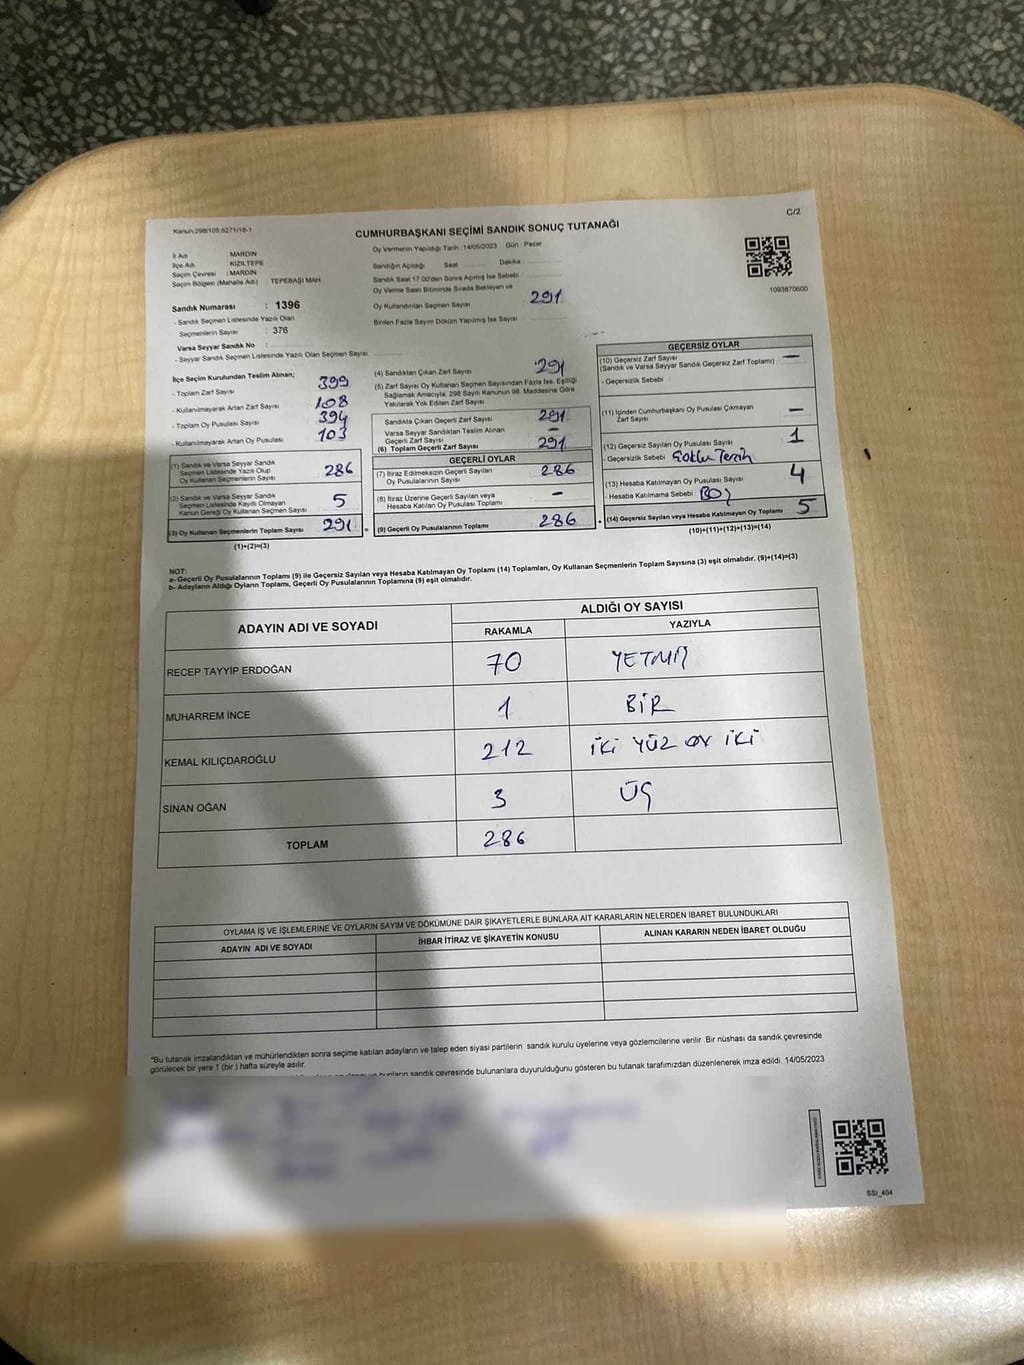 Kanun,298/105,6271/18-1
C/2
CUMHURBAŞKANI SEÇİMİ SANDIK SONUÇ TUTANAĞI
İl Adı : MARDİN
İlçe Adı : KIZILTEPE
Seçim Çevresi : MARDİN
Seçim Bölgesi (Mahalle Adı) TEPEBAŞI MAH.
Sandık Numarası : 1396
- Sandık Seçmen Listesinde Yazılı Olan
Seçmenlerin Sayısı : 376
Varsa Seyyar Sandık No :
- Seyyar Sandık Seçmen Listesinde Yazılı Olan Seçmen Sayısı
Oy Vermenin Yapıldığı Tarih : 14/05/2023 Gün : Pazar
Sandığın Açıldığı Saat Dakika :
Sandık Saat 17:00'den Sonra Açılmış İse Sebebi
Oy Verme Saati Bitiminde Sırada Bekleyen ve
Oy Kullandırılan Seçmen Sayısı 291
Birden Fazla Sayım Döküm Yapılmış İse Sayısı
1093870600
İlçe Seçim Kurulundan Teslim Alınan;
- Toplam Zarf Sayısı 399
- Kullanılmayarak Artan Zarf Sayısı 108
- Toplam Oy Pusulası Sayısı 394
- Kullanılmayarak Artan Oy Pusulası 103
(1) Sandık ve Varsa Seyyar Sandık
Seçmen Listesinde Yazılı Olup
Oy Kullanan Seçmenlerin Sayısı 286
(2) Sandık ve Varsa Seyyar Sandık
Seçmen Listesinde Kaydı Olmayan
Kanun Gereği Oy Kullanan Seçmen Sayısı 5
(3) Oy Kullanan Seçmenlerin Toplam Sayısı 291 =
(1)+(2)=(3)
(4) Sandıktan Çıkan Zarf Sayısı 291
(5) Zarf Sayısı Oy Kullanan Seçmen Sayısından Fazla İse, Eşitliği
Sağlamak Amacıyla; 298 Sayılı Kanunun 98. Maddesine Göre
Yakılarak Yok Edilen Zarf Sayısı
Sandıkta Çıkan Geçerli Zarf Sayısı 291
Varsa Seyyar Sandıktan Teslim Alınan
Geçerli Zarf Sayısı –
(6) Toplam Geçerli Zarf Sayısı 291
GEÇERLİ OYLAR
(7) İtiraz Edilmeksizin Geçerli Sayılan
Oy Pusulasının Sayısı 286
(8) İtiraz Üzerine Geçerli Sayılan veya
Hesaba Katılan Oy Pusulası Toplamı –
(9) Geçerli Oy Pusulalarının Toplamı 286 +
GEÇERSİZ OYLAR
(10) Geçersiz Zarf Sayısı –
(Sandık ve Varsa Seyyar Sandık Geçersiz Zarf Toplamı)
- Geçersizlik Sebebi :
(11) İçinden Cumhurbaşkanı Oy Pusulası Çıkmayan
Zarf Sayısı –
(12) Geçersiz Sayılan Oy Pusulası Sayısı 1
- Geçersizlik Sebebi Çoklu Tercih
(13) Hesaba Katılmayan Oy Pusulası Sayısı 4
- Hesaba Katılmama Sebebi : BOŞ
(14) Geçersiz Sayılan veya Hesaba Katılmayan Oy Toplamı 5
(10)+(11)+(12)+(13)=(14)
NOT:
a- Geçerli Oy Pusulalarının Toplamı (9) ile Geçersiz Sayılan veya Hesaba Katılmayan Oy Toplamı (14) Toplamları, Oy Kullanan Seçmenlerin Toplam Sayısına (3) eşit olmalıdır. (9)+(14)=(3)
b- Adayların Aldığı Oyların Toplamı, Geçerli Oy Pusulalarının Toplamına (9) eşit olmalıdır.
ADAYIN ADI VE SOYADI
ALDIĞI OY SAYISI
RAKAMLA YAZIYLA
RECEP TAYYİP ERDOĞAN 70 YETMİŞ
MUHARREM İNCE 1 BİR
KEMAL KILIÇDAROĞLU 212 İKİ YÜZ ON İKİ
SİNAN OĞAN 3 ÜÇ
TOPLAM 286
OYLAMA İŞ VE İŞLEMLERİNE VE OYLARIN SAYIM VE DÖKÜMÜNE DAİR ŞİKAYETLERLE BUNLARA AİT KARARLARIN NELERDEN İBARET BULUNDUKLARI
ADAYIN ADI VE SOYADI İHBAR İTİRAZ VE ŞİKAYETİN KONUSU ALINAN KARARIN NEDEN İBARET OLDUĞU
"Bu tutanak imzalandıktan ve mühürlendikten sonra seçime katılan adayların ve talep eden siyasi partilerin sandık kurulu üyelerine veya gözlemcilerine verilir .Bir nüshası da sandık çevresinde
görülecek bir yere 1 (bir ) hafta süreyle asılır.
bunların sandık çevresinde bulunanlara duyurulduğunu gösteren bu tutanak tarafımızdan düzenlenerek imza edildi. 14/05/2023
SSI_404